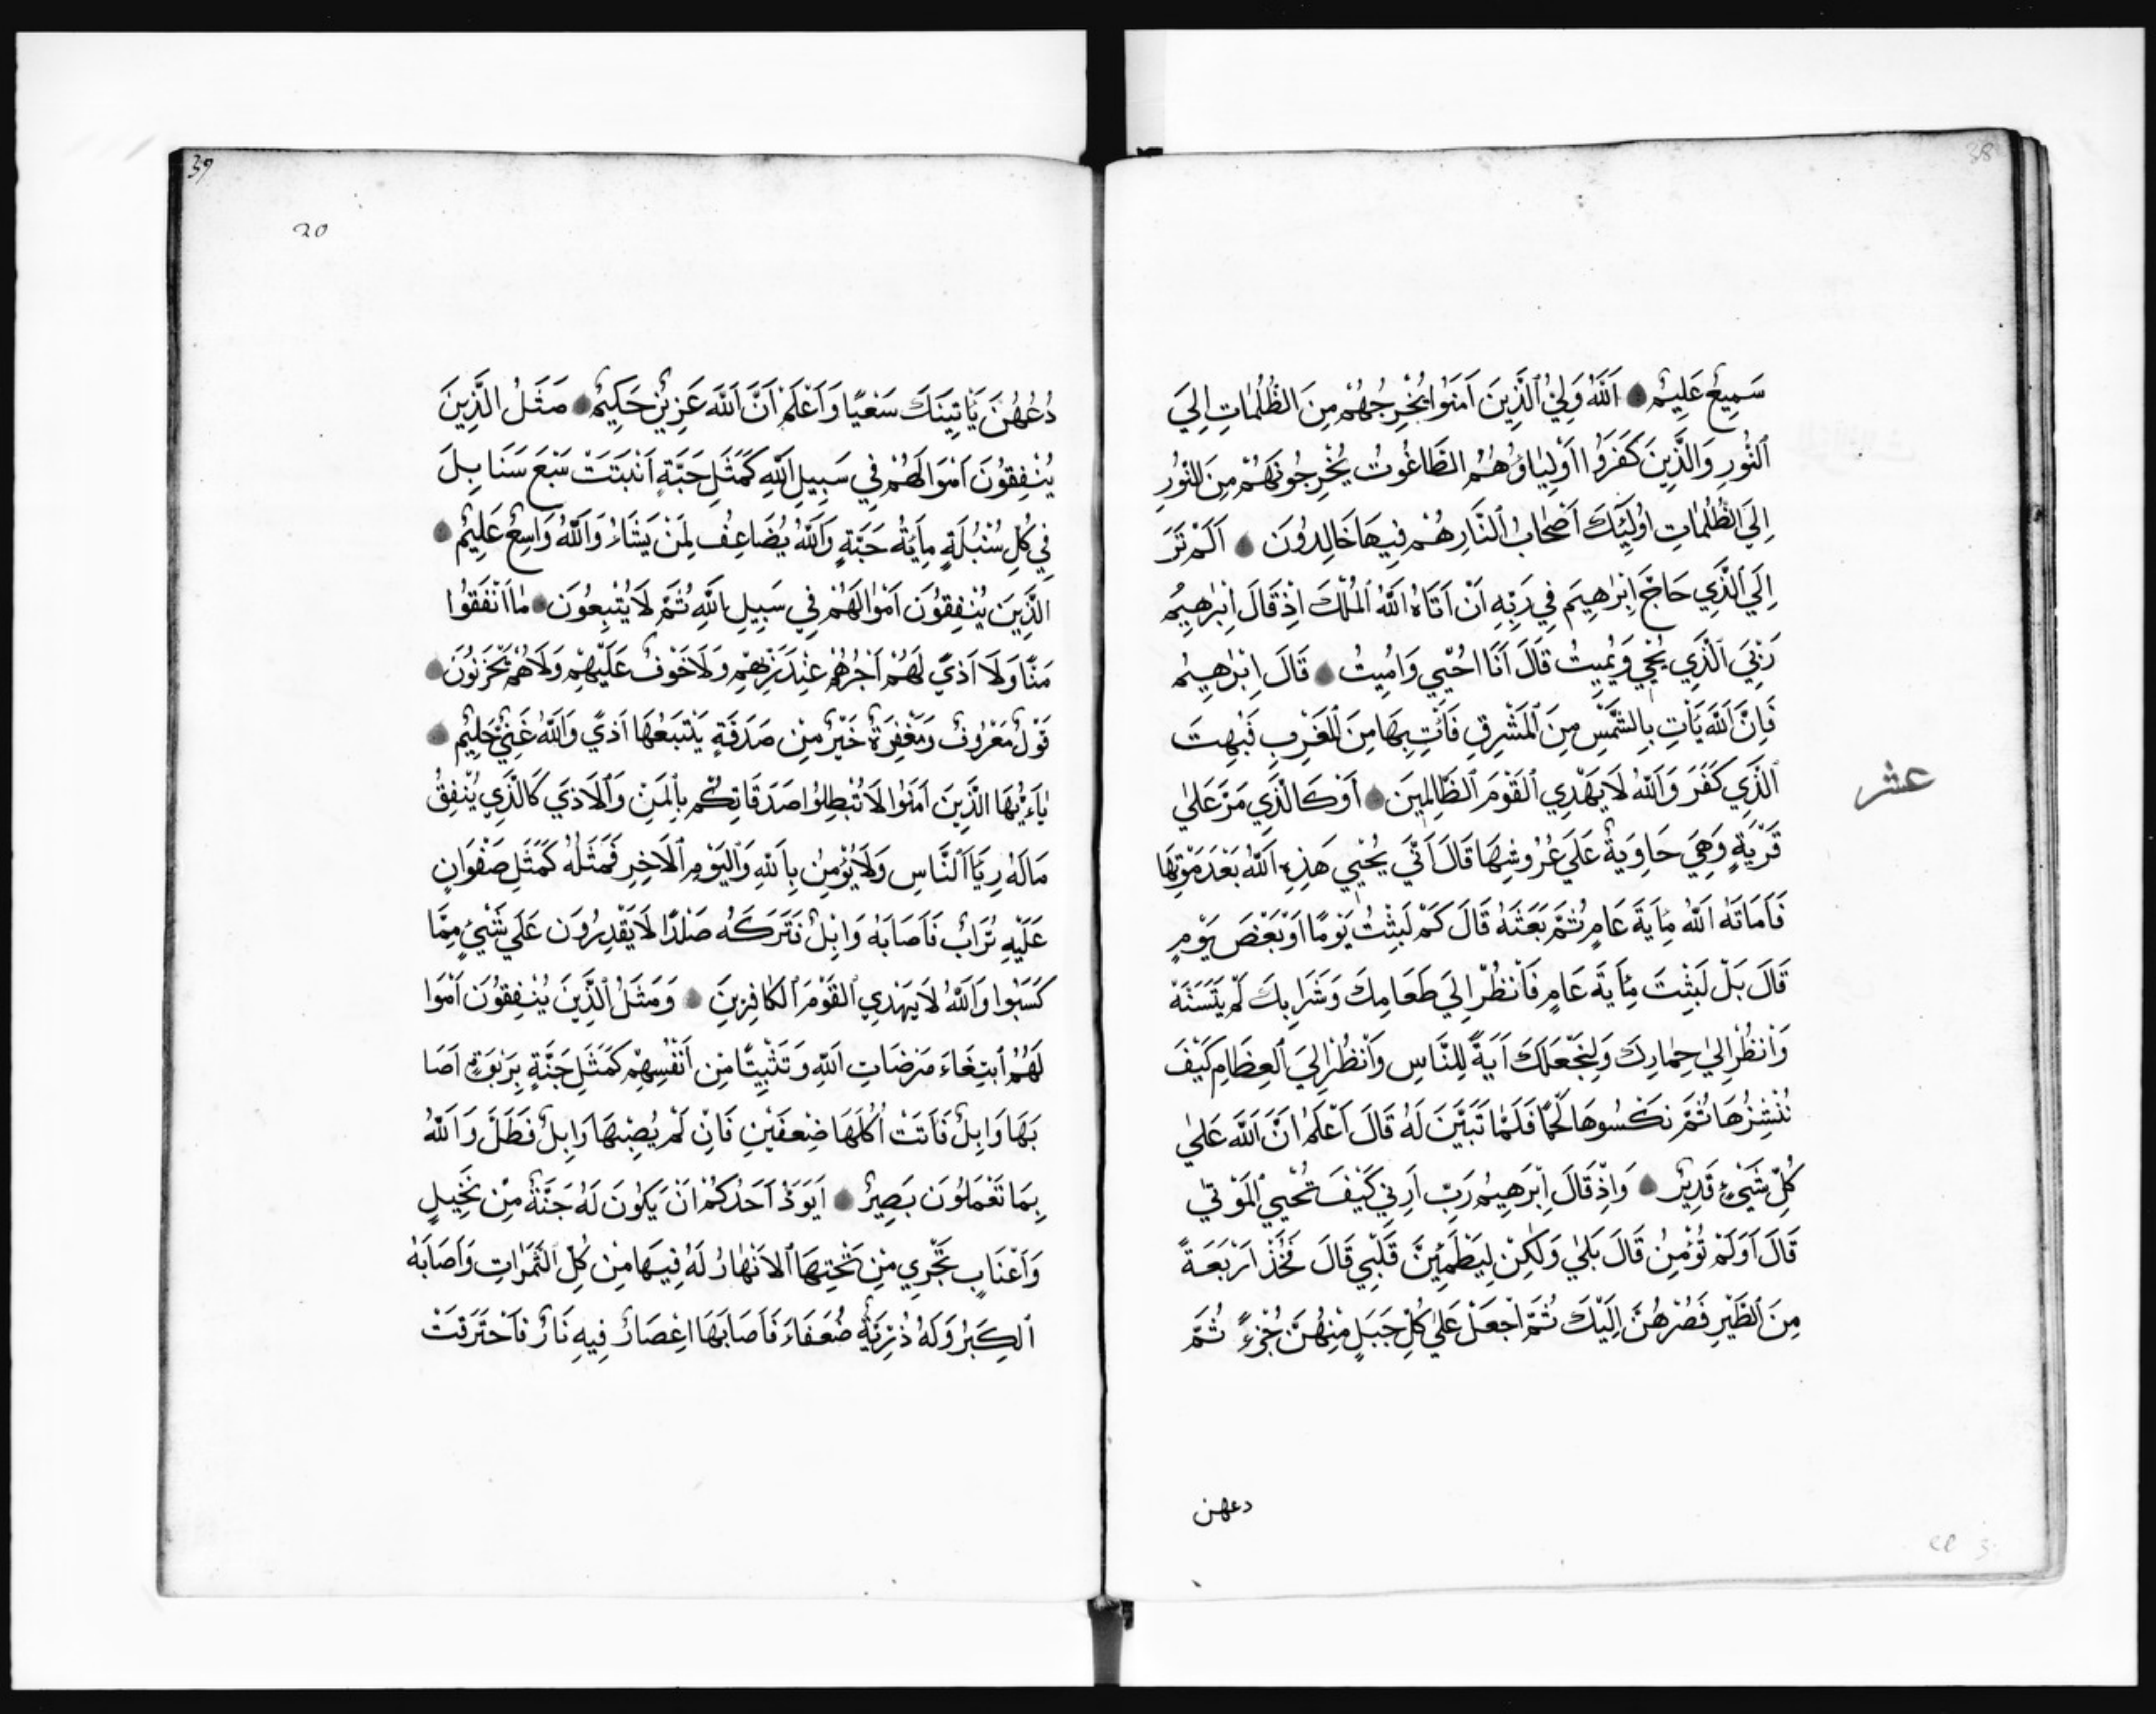 38
سَمِيعٌ عَلِيمٌ اَللّٰهُ وَلِيُّ ٱلَّذِينَ اَمَنُوا يُخْرِجُهُمْ مِنَ الظُّلُمَاتِ اِلَيَ
ٱلنُّورِ وَالَّذِينَ كَفَرُوا اَوْلِيَاؤُهُمُ الطَّاغُوتُ يُخْرِجُونَهُمْ مِنَ النُّورِ
اِلَيَ الظُّلُمَاتِ اُولَئِكَ اَصْحَابُ ٱلنَّارِ هُمْ فِيهَا خَالِدُونَ اَلَمْ تَرَ
اِلَي ٱلَّذِي حَاجَّ اِبْرٰهِيَم فِي رَبِّهِ اَنْ اَتَاهُ اَللّٰهُ ٱلْمُلْكَ اِذْ قَالَ اِبْرٰهِيمُ
رَبِّيَ ٱلَّذِي يُحْيِي وَيُمِيتُ قَالَ اَنَا اُحْيِي وَاُمِيتُ قَالَ اِبْرٰهِيمُ
فَاِنَّ ٱللّٰهَ يَأْتِ بِالشَّمْسِ مِنَ ٱلْمَشْرِقِ فَأْتِ بِهَا مِنَ ٱلْمَغْرِبِ فَبُهِتَ
ٱلَّذِي كَفَرَ وَٱللّٰهُ لَا يَهْدِي ٱلقَوْمَ ٱلظَّالِمِينَ اَوْ كَالَّذِي مَرَّ عَلَيٰ
عشر
قَرْيَةٍ وَهِيَ حَاوِيَةٌ عَلَي عُرُوشِهَا قَالَ اَنَّي يُحْيِي هَذِهِ اَللّٰهُ بَعْدَ مَوْتِهَا
فَاَمَاتَهُ اَللّٰه مِأَيَةَ عَامٍ ثُمَّ بَعَثَهُ قَالَ كَمْ لَبِثْتُ يَوْمًا اَوْ بَعْضَ يَوْمٍ
قَالَ بَلْ لَبِثْتَ مِأَيَةَ عَامٍ فَاَنْظُرْ اِلَي طَعَامِكَ وَشَرَابِكَ لَمْ يَتَسَنَّهْ
وَاَنظُرْ اِلَيٰ حِمَارِكَ وَلِنَجْعَلَكَ اَيَةً لِلنَّاسِ وَاَنْظُرْ اِلَيَ ٱلعِظَامِ كَيْفَ
نُنْشِزُهَا ثُمَّ نَكْسُوهَا لَحْمًا فَلَمَّا تَبَيَّنَ لَهُ قَالَ اَعْلَمُ اَنَّ اَللّٰهَ عَلَيٰ
كُلِّ شَيْءٍ قَدِيرٌ وَاِذْ قَالَ اِبْرَهِيمُ رَبِّ اَرِنِي كَيْفَ تُحْيِي ٱلمَوْتَي
قَالَ اَوَلَمْ تُؤْمِنْ قَالَ بَلَيٰ وَلَكِنْ لِيَطْمَئِنَّ قَلْبِي قَالَ فَخُذْ اَرْبَعَةً
مِنَ ٱلطَّيْرِ فَصُرْهُنَّ اِلَيْكَ ثُمَّ اْجْعَلْ عَلَيٰ كُلِّ جَبَلٍ مِنْهُنَّ جُزْءً ثُمَّ
دعهن
39
20
دُعُهُنَ يَأتِيَنَكَ سَعْيًا وَاَعْلَمْ اَنَّ اَللّٰهَ عَزِيزٌ حَكِيمٌ مَثَلُ الَّذِينَ
يُنْفِقُونَ اَمْوَالَهُمْ فِي سَبِيلِ اَللّٰهِ كَمَثَلِ حَبَّةٍ اَنْبَتَتْ سَبْعَ سَنَابِلَ
فِي كُلِّ سُنْبُلَةٍ مِأَيَةُ حَبَّةٍ وَٱللّٰهُ يُضَاعِفُ لِمَنْ يَشَاءُ وَٱللّٰهُ وَاسِعٌ عَلِيمٌ
الَّذِينَ يُنْفِقُونَ اَمْوَالَهُمْ فِي سَبِيلِ ٱللّٰهِ ثُمَّ لَا يُتْبِعُونَ مَا اَنْفَقُوا
مَنًّا وَلَا اَذيً لَهُمْ اَجْرُهُمْ عِنْدَ رَبِّهِمِ وَلَا خَوْفٌ عَلَيْهِمِ وَلَا هُمْ يَحْزَنُونَ
قَوْلٌ مَعْرُوفٌ وَمَغْفِرَةٌ خَيْرٌ مِنْ صَدَقَةٍ يَتْبَعُهَا اَذيً وَٱللّٰهُ غَنِيٌّ حَلِيمٌ
يَاءَيُّهَا الَّذِينَ اَمَنُوا لَا تُبْطِلُوا صَدَقَاتِكُم بِٱلْمَنِّ وَٱلَاذَي كَالَّذِي يُنْفِقُ
مَالَهُ رِيَّاَ ٱلنَّاسِ وَلَا يُؤْمِنُ بِاَللّٰهِ وَاَليَوْمِ ٱلَاخِرِ فَمَثَلُهُ كَمَثَلِ صَفْوَانٍ
عَلَيْهِ تُرَابٌ فَاَصَابَهُ وَابِلٌ فَتَرَكَهُ صَلْدًا لَا يَقْدِرُونَ عَلَي شَيْءٍ مِمَّا
كَسَبُوا وَاَللّٰهُ لَا يَهْدِي ٱلقَوْمَ ٱلكَافِرِينَ وَمَثَلُ ٱلَّذِينَ يُنْفِقُونَ اَمْوَا
لَهُمُ اْبتِغَاءَ مَرْضَاتِ اَللّٰهِ وَتَثْبِيتًا مِن اَنْفُسِهِمْ كَمَثَلِ جَنَّةٍ بِرَبْوَةٍ اَصَا
بَهَا وَابِلٌ فَاَتَتْ اُكُلَهَا ضِعفَيْنِ فَاِنْ لَمْ يُصِبْهَا وَابِلٌ فَطَلَّ وَاَللّٰهُ
بِمَا تَعْمَلُونَ بَصِيرٌ اَيَوَدُّ اَحَدُكُمْ اَنْ يَكُونَ لَهُ جَنَّةٌ مِنْ نَخِيلٍ
وَاَعْنَابٍ تَجْرِي مِنْ تَحْتِهَا ٱلاَنْهَارُ لَهُ فِيهَا مِنْ كُلِّ ٱلثَّمَرَاتِ وَاَصَابَهُ
ٱلكِبَرُ وَلَهُ ذُرِّيَةٌ ضُعَفَاءُ فَاَصَابَهَا اعِْصَارٌ فِيهِ نَارٌ فَاَحْتَرَقَتْ